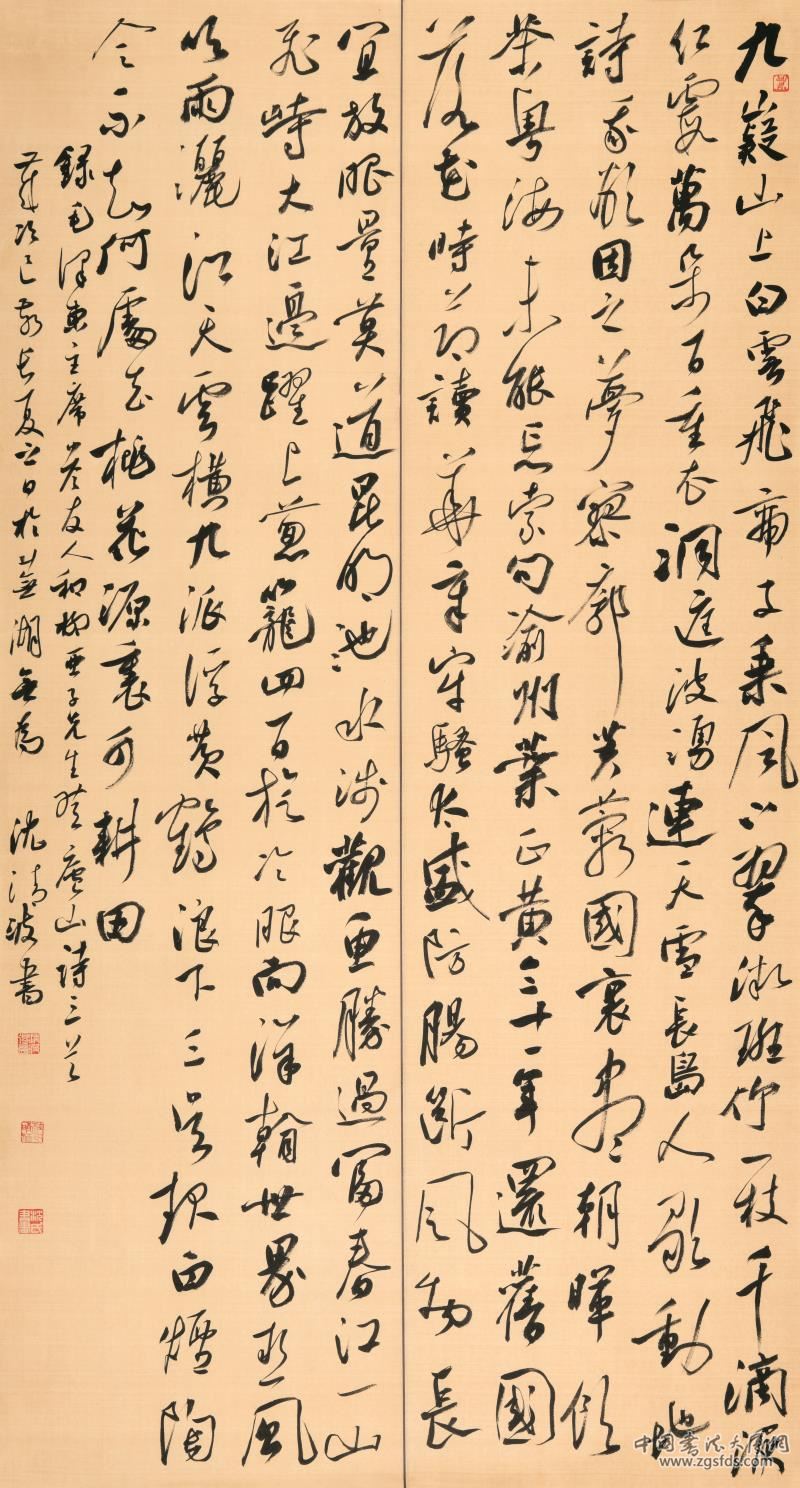 九嶷山上白雲飛帝子乘風下翠微斑竹一枝千滴淚
红霞萬朵百重衣洞庭波湧連天雪長島人歌動地
詩我欲因之夢寥廓芙蓉國裏盡朝暉飲
茶粤海未能忘索句渝州葉正黄三十一年還舊國
落花時節讀華章牢騷太盛防腸斷風物長
宜放眼量莫道昆明池水淺觀魚勝過富春江一山
飛峙大江邊躍上葱蘢四百旋冷眼向洋看世界熱風
吹雨灑江天雲横九派浮黄鶴浪下三吴起白煙陶
令不知何處去桃花源裏可耕田
録毛澤東主席答友人和柳亞子先生登廬山詩三首
歲次己亥長夏之日於蕪湖無為 沈清波書
中国书法大厦网
www.zgsfds.com